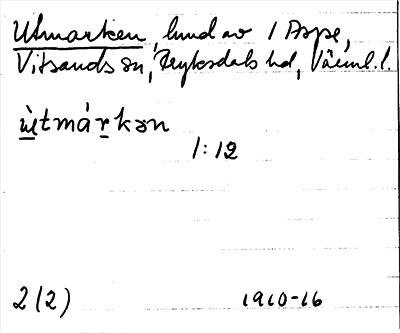 Utmarken, hmd av 1 Aspe,
Vitsands sn, Fryksdals hd, Värml. l.
ùtmárkən
1:12
2(2) 1910-16